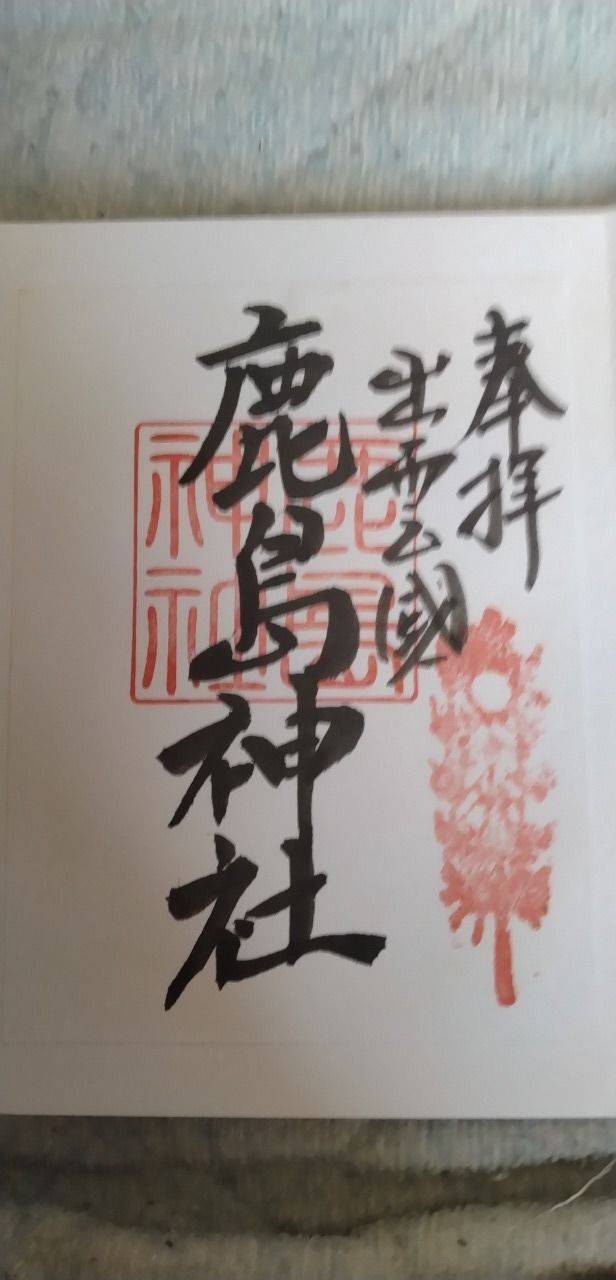 奉拝
出雲國
鹿島神社
鹿島
神社